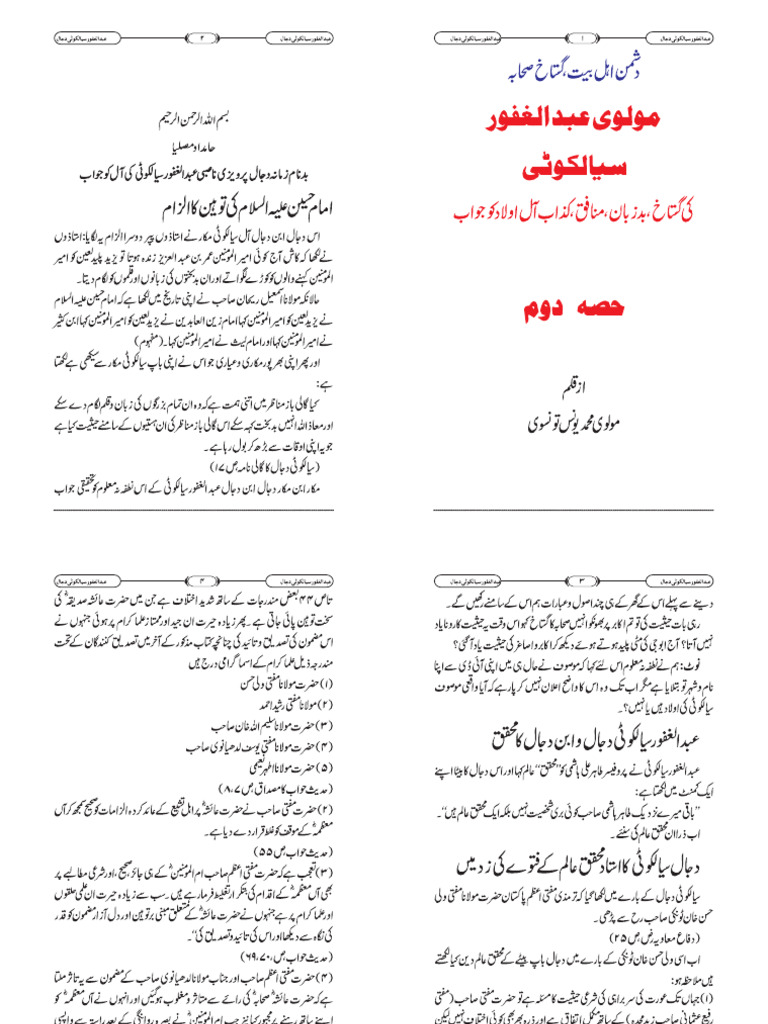 عبدالغفور سیالکوٹی دجال
۱
عبدالغفور سیالکوٹی دجال
دشمن اہل بیت، گستاخ صحابہ
مولوی عبدالغفور
سیالکوٹی
کی گستاخ، بدزبان، منافق، کذاب آل اولاد کو جواب
حصہ دوم
از قلم
مولوی محمد یونس تونسوی
عبدالغفور سیالکوٹی دجال
۲
عبدالغفور سیالکوٹی دجال
بسم اللہ الرحمن الرحیم
حامداو مصلیا
بدنام زمانہ دجال پرویزی ناصبی عبدالغفور سیالکوٹی کی آل کو جواب
امام حسین علیہ السلام کی توہین کا الزام
اس دجال ابن دجال آل سیالکوٹی مکار نے استاذوں پپر دوسرا الزام یہ لگایا: استاذوں
نے لکھا کہ کاش آج کوئی امیر المؤمنین عمر بن عبدالعزیز زندہ ہوتا تو یزید پلید لعین کو امیر
المؤمنین کہنے والوں کو کوڑے لگواتے اور ان بدبختوں کی زبانوں اور قلموں کو لگام دیتا۔
حالانکہ مولانا اسمعیل ریحان صاحب نے اپنی تاریخ میں لکھا ہے کہ امام حسین علیہ السلام
نے یزید لعین کو امیر المؤمنین کہا امام زین العابدین نے یزید لعین کو امیر المؤمنین کہا ابن کثیر
نے امیر المؤمنین کہا اور امام لیث نے امیر المؤمنین کہا۔ (مفہوم)
اور پھر اپنی بھرپور مکاری و عیاری جو اس نے اپنی باپ سیالکوٹی مکار سے سیکھی ہے لکھتا
ہے:
کیا گالی باز مناظر میں اتنی ہمت ہے کہ وہ ان تمام بزرگوں کی زبان و قلم لگام دے سکے
اور معاذ اللہ انہیں بدبخت کہہ سکے اس گالی باز مناظر کی ان ہستیوں کے سامنے حیثیت کیا ہے
جو یہ اپنی اوقات سے بڑھ کر بول رہا ہے۔
(سیالکوٹی دجال کا گالی نامہ ص ۱۷)
مکار ابن مکار دجال ابن دجال عبدالغفور سیالکوٹی کے اس نطفہ نہ معلوم کو تحقیقی جواب
عبدالغفور سیالکوٹی دجال
۳
عبدالغفور سیالکوٹی دجال
دینے سے پہلے اس کے گھر کے ہی چند اصول و عبارات ہم اس کے سامنے رکھیں گے۔
رہی بات حیثیت کی تو تم اکابر پر بھونکو انہیں صحابہ کا گستاخ کہو اس وقت یہ حیثیت کا رونا یاد
نہیں آتا؟ آج ابوجی کی مٹی پلید ہوتے ہوئے دیکھ کر اکابر و اصاغر کی حیثیت یاد آگئی؟
نوٹ: ہم نے نطفہ نہ معلوم اس لئے کہا کہ موصوف نے حال ہی میں اپنی آئی ڈی سے اپنا
نام و شہر تو بتلایا ہے مگر اب تک وہ اس کا واضح اعلان نہیں کر پا رہے کہ آیا واقعی موصوف
سیالکوٹی کی اولاد ہیں یا نہیں؟۔
عبدالغفور سیالکوٹی دجال و ابن دجال کا محقق
عبدالغفور سیالکوٹی نے پروفیسر طاہر علی ہاشمی کو "محقق" عالم کہا اور اس دجال کا بیٹا اپنے
ایک کمنٹ میں لکھتا ہے:
"باقی میرے نزدیک طاہر ہاشمی صاحب کوئی بری شخصیت نہیں بلکہ ایک محقق عالم ہیں"۔
اب ذرا ان محقق عالم کی سنئے۔
دجال سیالکوٹی کا استاد محقق عالم کے فتوے کی زد میں
سیالکوٹی دجال کے بارے میں لکھا گیا کہ ترمذی مفتی اعظم پاکستان حضرت مولانا مفتی ولی
حسن خان ٹونکی صاحب رح سے پڑھی۔
(دفاع معاویہ ض، ص ۲۵)
اب اسی ولی حسن خان ٹونکی کے بارے میں دجال باپ بیٹے کے محقق عالم دین کیا لکھتے
ہیں ملاحظہ ہو:
(۱) جہاں تک عورت کی سربراہی کی شرعی حیثیت کا مسئلہ ہے تو حضرت مفتی صاحب (مفتی
رفیع عثمانی صاحب زید مجدہ) کے ساتھ مکمل اتفاق ہے اور
عبدالغفور سیالکوٹی دجال
۴
عبدالغفور سیالکوٹی دجال
تا ص ۴۴ بعض مندرجات کے ساتھ شدید اختلاف ہے جن میں حضرت عائشہ صدیقہؓ کی
سخت توہین پائی جاتی ہے۔ پھر زیادہ حیرت ان جید اور ممتاز علما کرام پر ہوئی جنہوں نے
اس مضمون کی تصدیق و تائید کی چنانچہ کتاب مذکور کے آخر میں تصدیق کنندگان کے تحت
مندرجہ ذیل علما کرام کے اسما گرامی درج ہیں
(۱) حضرت مولانا مفتی ولی حسن
(۲) مولانا مفتی رشید احمد
(۳) حضرت مولانا سلیم اللہ خان صاحب
(۴) حضرت مولانا مفتی یوسف لدھیانوی صاحب
(۵) حضرت مولانا اطہر نعیمی
(حدیث حواب کا مصداق، ص ۸،۷)
(۲) حضرت مفتی صاحب نے حضرت عائشہؓ پر اہل تشیع کے عائد کردہ الزامات کو صحیح سمجھ کر آں
معظمہؓ کے موقف کو غلط قرار دے دیا ہے۔
(حدیث حواب ص ۵۵)
(۳) تعجب ہے کہ حضرت مفتی اعظم صاحب ام المؤمنینؓ کے ہی جائز، صحیح، اور شرعی مطالبے پر
بھی آں معظمہؓ کے اقدام کی بتکرار تغلیط فرما رہے ہیں۔ سب سے زیادہ حیرت ان علمی حلقوں
اور علما کرام پر ہے جنہوں نے حضرت عائشہؓ کے متعلق مبنی بر توہین اور دل آزار مضمون کو قدر
کی نگاہ سے دیکھا اور اس کی تائید و تصدیق کی"۔
(حدیث حواب، ص ۶۹،۷۰)
(۴) حضرت مفتی اعظم صاحب اور جناب مولانا لدھیانوی صاحب کے مضمون سے یہ تاثر ملتا
ہے کہ حضرت عائشہؓ صحابہؓ کی رائے سے متاثر و مغلوب ہو گئیں اور انہوں نے آں معظمہؓ کو